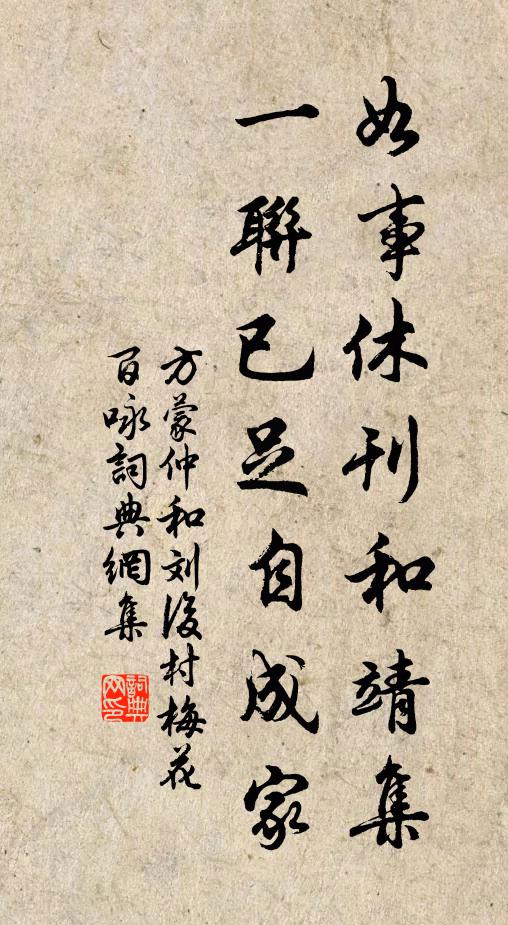 好事休刊和靖集
一聯已足自成家
方蒙仲和刘後村梅花
百咏詞典網集
詞典网印